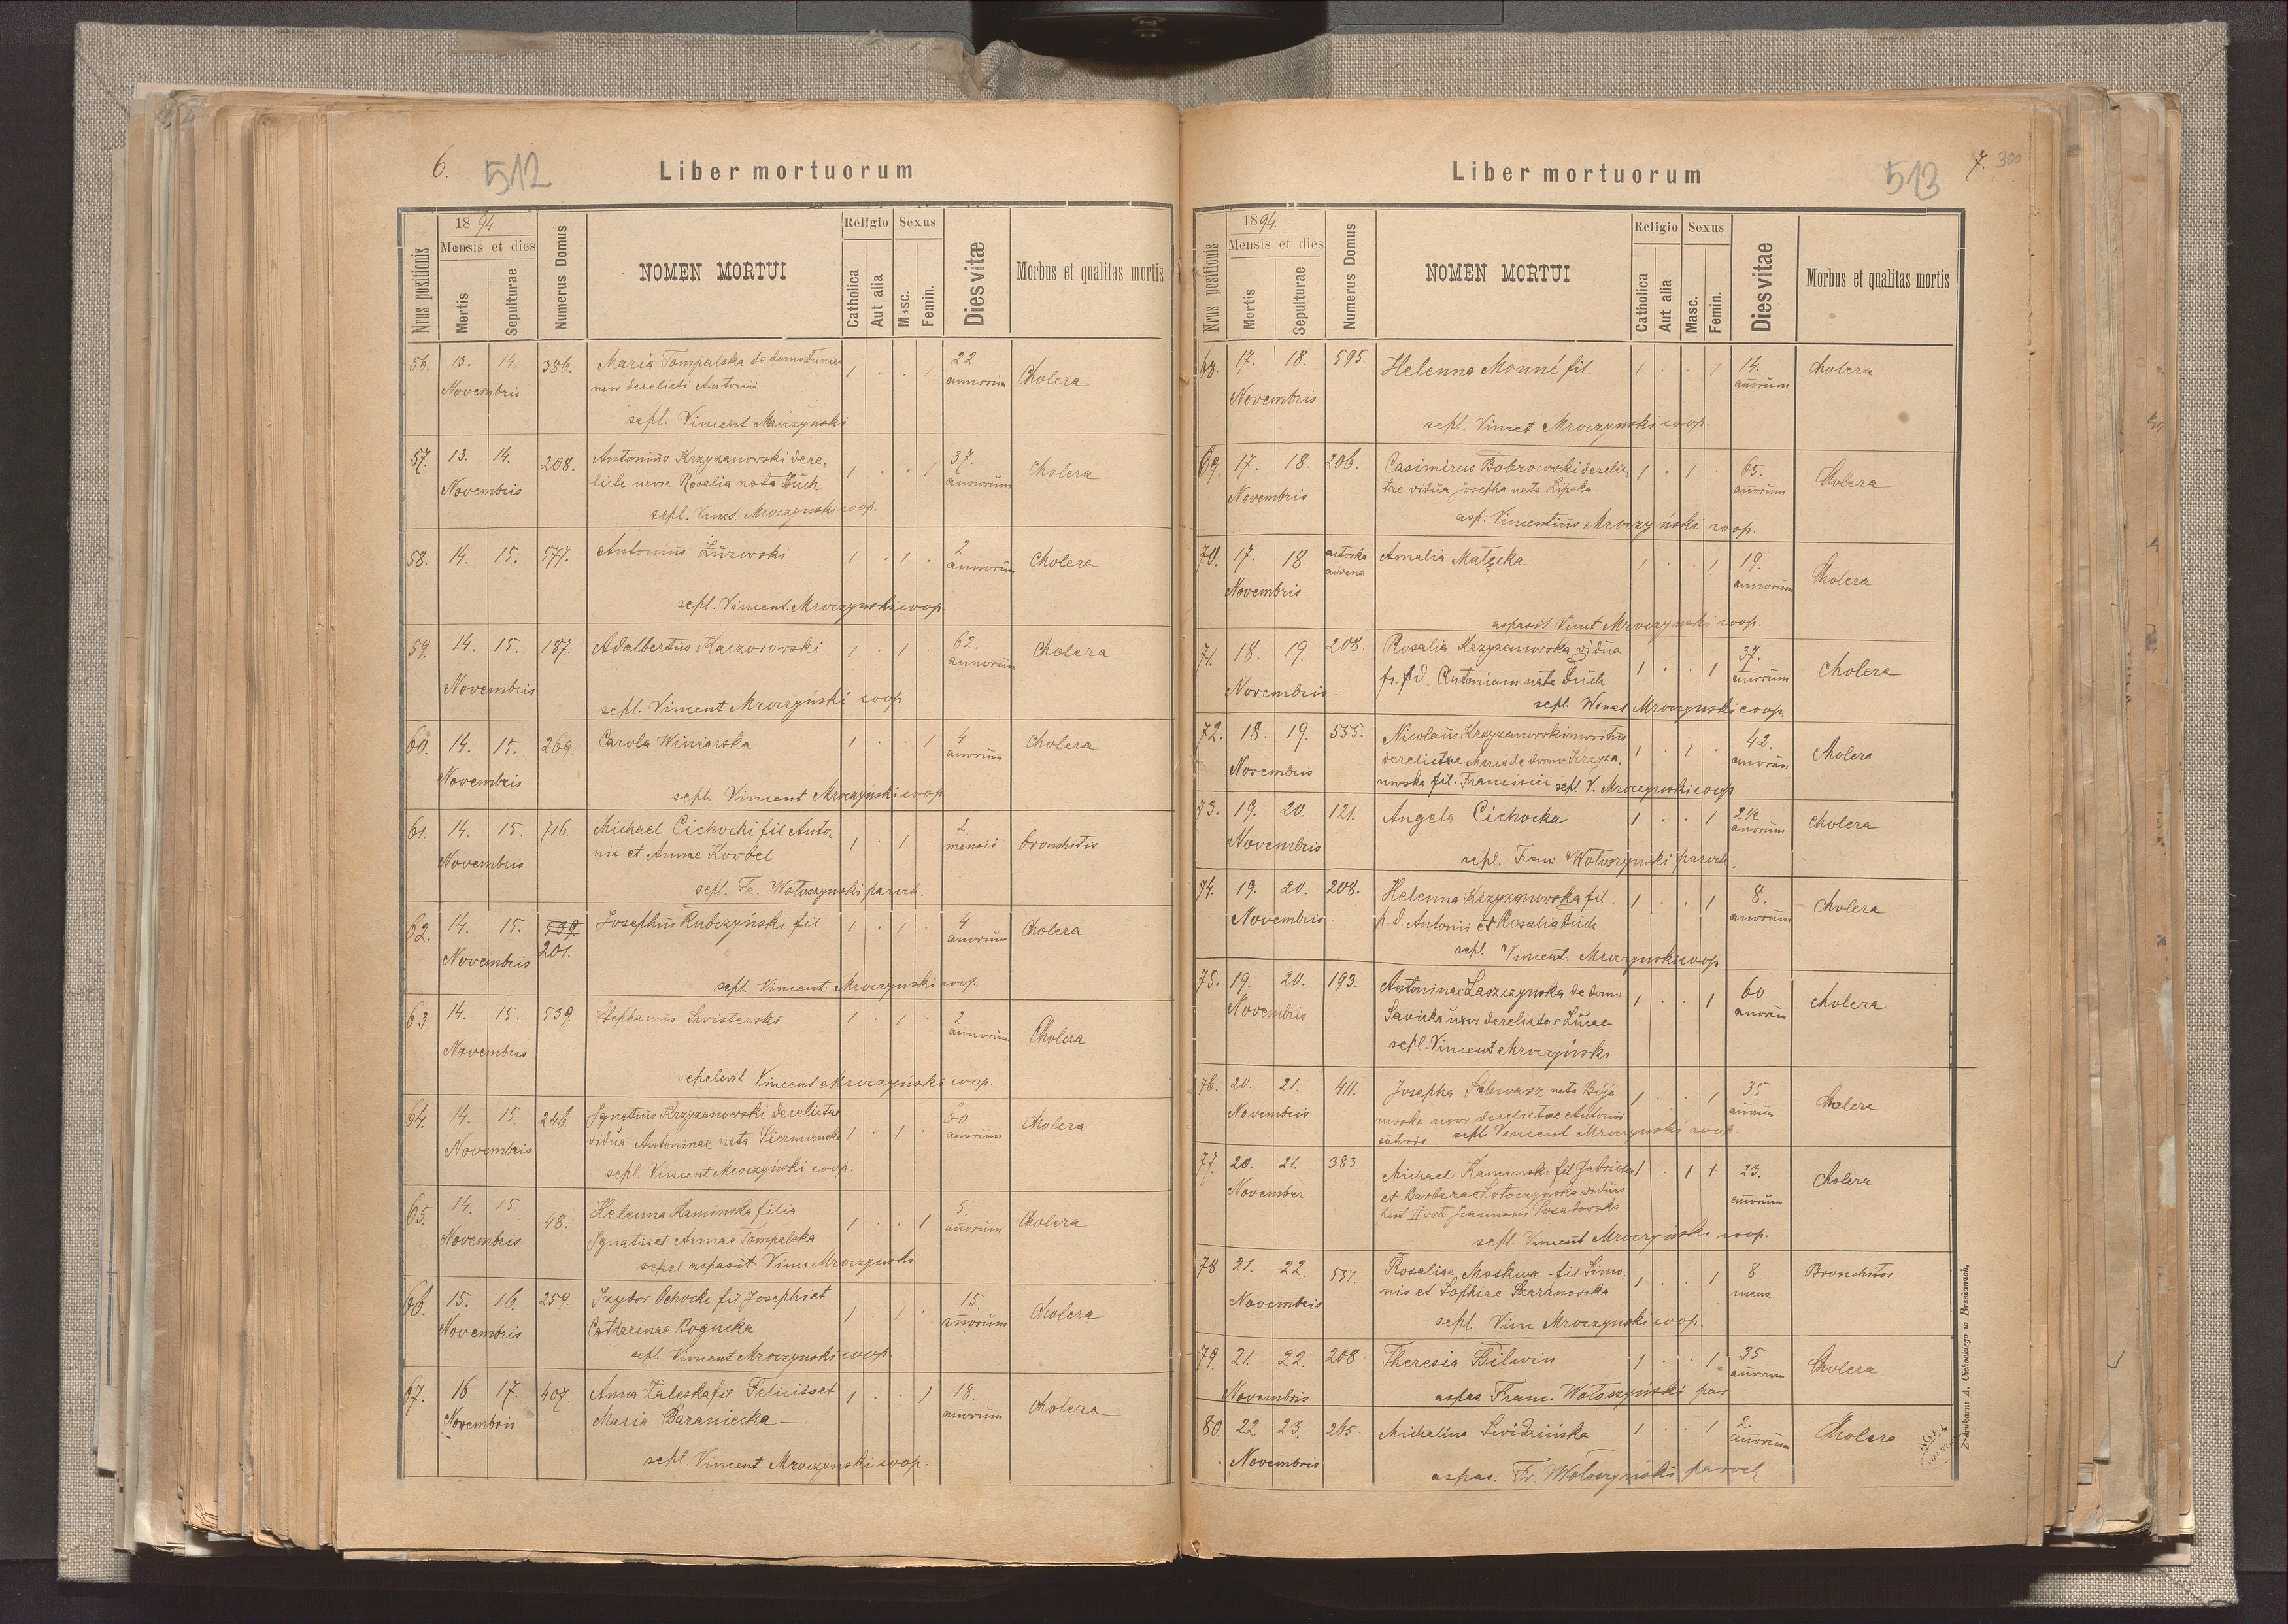 6.
512
Liber mortuorum
Nrus positionis
1894
Mensis et dies
Mortis
Sepulturae
Numerus Domus
NOMEN MORTUI
Religio
Catholica
Aut alia
Sexus
Masc.
Femin.
Dies vitæ
Morbus et qualitas mortis
56. 13. 14. 386. Maria Tompalska de domo 1 . . 1. 22. Cholera
Novembris uxor derelicti Antonii annorum
sepl. Vincent Mroczynski
57. 13. 14. 208. Antonius Krzyzanowski dere- 1 . . 1 37. Cholera
Novembris licte uxore Rosalia nata Duch annorum
sepl. Vinct. Mroczynski coop.
58. 14. 15. 577. Antonius Żurowski 1 . 1 . 2 Cholera
annorum
sepl. Vincent. Mroczynski coop.
59. 14. 15. 187. Adalbertus Kaczorowski 1 . 1 . 62. Cholera
Novembris annorum
sepl. Vincent Mroczyński coop.
60. 14. 15. 269. Carola Winiarska 1 . . 1 4 Cholera
Novembris anorum
sepl. Vincent Mroczyński coop
61. 14. 15. 716. Michael Cichocki fil Anto- 1 . 1 . 2. bronchitis
Novembris nii et Annae Korbel mensis
sepl. Fr. Wołoszynski paroch.
62. 14. 15. 539. Josephus Rubczyński fil 1 . 1 . 4 Cholera
Novembris 201. anorum
sepl. Vincent. Mroczynski coop
63. 14. 15. 539. Stephanus Swisterski 1 . 1 . 2 Cholera
Novembris annorum
sepelivit Vincent Mroczyński coop.
64. 14. 15. 246. Ignatius Krzyzanowski derelictae 1 . 1 . 60 Cholera
Novembris vidua Antoninae nata anorum
sepl. Vincent Mroczyński coop.
65. 14. 15. 48. Helenna Kaminska filia 1 . . 1 5. Cholera
Novembris Ignatii et Annae Tompalska anorum
sepel aspasit Vinc Mroczynski
66. 15. 16. 259. Izydor Ochocki fil Josephi et 1 . 1 . 15. Cholera
Novembris Catharinae Bogucka anorum
sepl. Vincent Mroczynski coop.
67. 16 17. 407. Anna Zaleska fil Feliciis et 1 . . 1 18. Cholera
Novembris Maria Baraniecka — anorum
sepl. Vincent Mroczynski coop.
Liber mortuorum
513
7. 300
Nrus positionis
1894.
Mensis et dies
Mortis
Sepulturae
Numerus Domus
NOMEN MORTUI
Religio
Catholica
Aut alia
Sexus
Masc.
Femin.
Dies vitae
Morbus et qualitas mortis
68. 17. 18. 595. Helenna Monné fil. 1 . . 1 14. Cholera
Novembris anorum
sepl. Vincet Mroczynski coop.
69. 17. 18. 206. Casimirus Bobrowski derelic- 1 . 1 . 65. Cholera
Novembris tae vidua Josepha nata Lipska anorum
asp: Vincentius Mroczyński coop.
70. 17. 18 Amalia Małęcka 1 . . 1 19. Cholera
Novembris annorum
aspasit Vinct. Mroczynski coop.
71. 18. 19. 208. Rosalia Krzyzanowska vidua 1 . . 1 37. Cholera
Novembris Antonium nata Duch anorum
sepl. Wincet Mroczynski coop.
72. 18. 19. 555. Nicolaus Krzyzanowski maritus 1 . 1 . 42. Cholera
Novembris derelictae Maria de domo Krzyza- anorum
nowska fil. Francisci sepl V. Mroczynski coop
73. 19. 20. 121. Angela Cichocka 1 . . 1 2½ Cholera
Novembris anorum
sepl. Franc Wołoszynski paroch.
74. 19. 20. 208. Helenna Krzyzanowska fil. 1 . . 1 8. Cholera
Novembris p. d. Antonii et Rosalia Duch anorum
sepl Vincent. Mroczynski coop
75. 19. 20. 193. Antoninae Laszczynska de domo 1 . . 1 60 Cholera
Novembris Savicka uxor derelictae Lucae anorum
sepl. Vincent Mroczyński
76. 20. 21. 411. Josepha Schwarz nata Buja- 1 . . 1 35 Cholera
Novembris nowska uxor derelictae Antonii anorum
sutoris sepl Vincent Mroczynski coop.
77. 20. 21. 383. Michael Kaminski fil Gabrielis 1 . 1 + 23. Cholera
November et Barbarae viduas anorum
post II voti Joannem
sepl. Vincent Mroczyński coop.
78 21. 22. 551. Rosaliae Moskwa fil. Simo- 1 . . 1 8 Bronchitis
Novembris nis et Sophiae mens
sepl Vinc Mroczynski coop.
79. 21. 22. 208 Theresia Bilwin 1 . . 1 35 Cholera
Novembris anorum
aspas Franc. Wołoszyński par
80. 22 23. 265. Michalina Swidzińska 1 . . 1 2. Cholera
Novembris anorum
aspas. Fr. Wołoszyński paroch
Z drukarni A. Cichockiego w Brzeżanach.